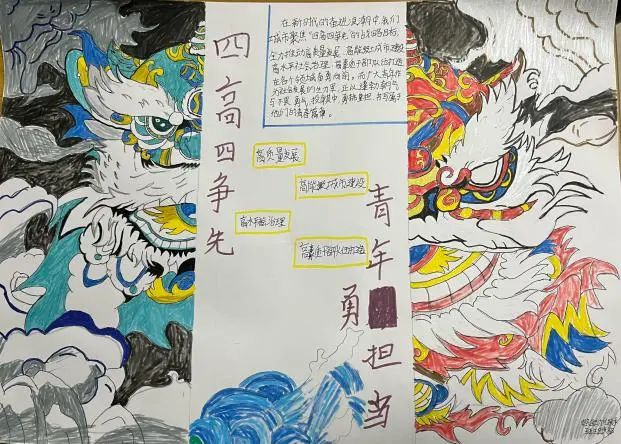 四高四争先
在新时代的奋进浪潮中,我们
城市聚焦“四高四争先”的战略目标,
全力推动高质量发展、高能级城市建设
高水平社会治理、高素质干部队伍打造
在各个领域奋勇向前。而广大青年作
为社会发展的生力军,正以蓬勃朝气
与不畏勇气,投身其中,勇挑重担,书写属于
他们的青春篇章。
高质量发展
高能级城市建设
高水平治理
高素质干部队伍打造
青年
勇担当